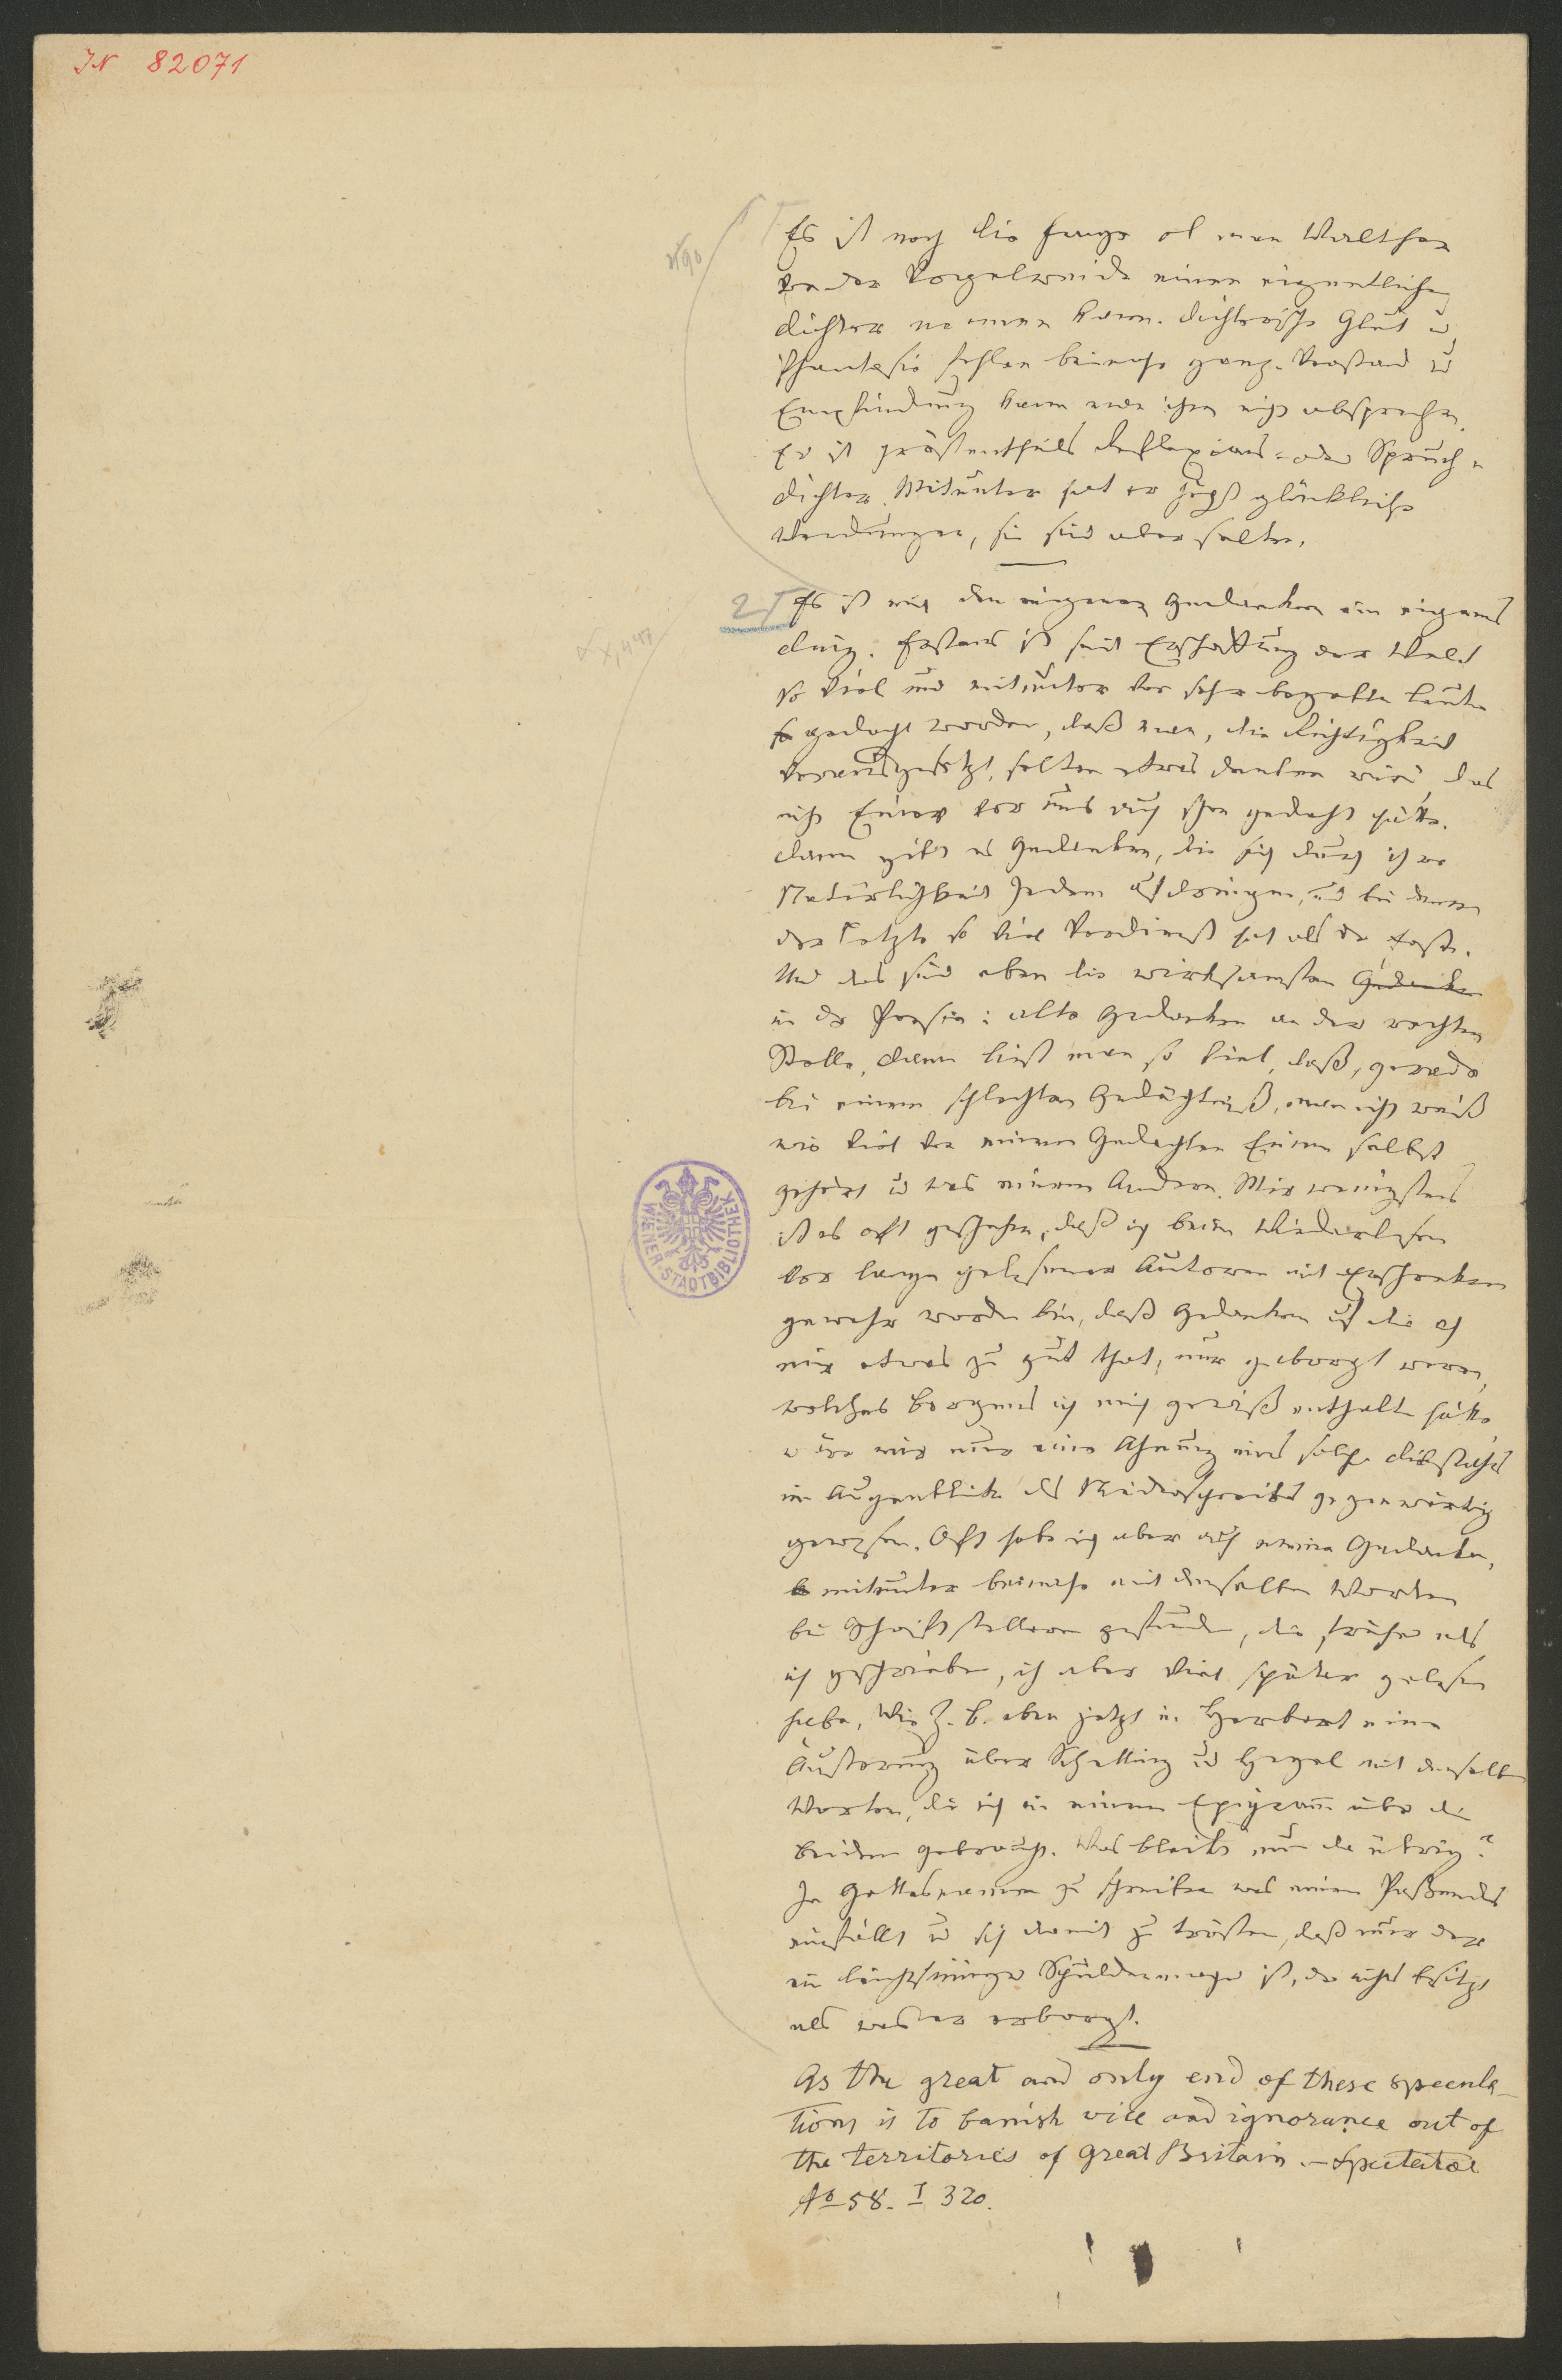 IN 82071
Es ist noch die Frage ob man Walther
von der Vogelweide einen eigentlichen
Dichter nennen kann. Dichterische Glut u
Phantasie fehlen beinahe ganz. Verstand u
Empfindung kann man ihm nicht absprechen.
Er ist größtentheils Reflexions- oder Spruch-
dichter. Mitunter hat er höchst glückliche
Wendungen, sie sind aber selten.
2 Es ist mit den eigenen Gedanken ein eigenes
Ding. Erstens ist seit Erschaffung der Welt
so viel und mitunter von sehr begabten Leuten
gedacht worden, daß man, die Richtigkeit
vorausgesetzt, selten etwas denken wird, das
nicht Einer vor uns auch schon gedacht hätte.
Dann gibt es Gedanken, die sich durch ihre
Natürlichkeit Jedem aufdringen, und bei denen
der Letzte so viel Verdienst hat als der Erste.
Und das sind eben die wirksamsten Gedanken
in der Poesie: alte Gedanken an der rechten
Stelle. Dann liest man so viel, daß, gerade
bei einem schlechten Gedächtniß, man nicht weiß
wie viel von einem Gedachten Einem selbst
gehört u was einem Andern. Mir wenigstens
ist es oft geschehen, daß ich beim Wiederlesen
vor lange gelesener Autoren mit Erschrecken
gewahr worden bin, daß Gedanken auf die ich
mir etwas zu gut that, nur geborgt waren,
welches Borgens ich mich gewiß enthalten hätte,
wäre mir nur eine Ahnung eines solchen Diebstahls
im Augenblick des Niederschreibens gegenwärtig
gewesen. Oft habe ich aber auch meine Gedanken,
mitunter beinahe mit denselben Worten
bei Schriftstellern gefunden, die früher als
ich geschrieben, ich aber viel später gelesen
habe, Wie z. B. eben jetzt in Herbart eine
Äußerung über Schelling und Hegel mit denselben
Worten, die ich in einem Epigram̅ über die
beiden gebraucht. Was bleibt nun da übrig?
In Gottesnamen zu schreiben was einem Passendes
einfällt u sich damit zu trösten, daß nur der
ein leichtsinniger Schuldenmacher ist, der nichts besitzt
als was er erborgt.
As the great and only end of these specula-
tions is to banish vice and ignorance out of
the territories of Great Britain. – Spectator
No 58. I 320.
WIENER-STADTBIBLIOTHEK